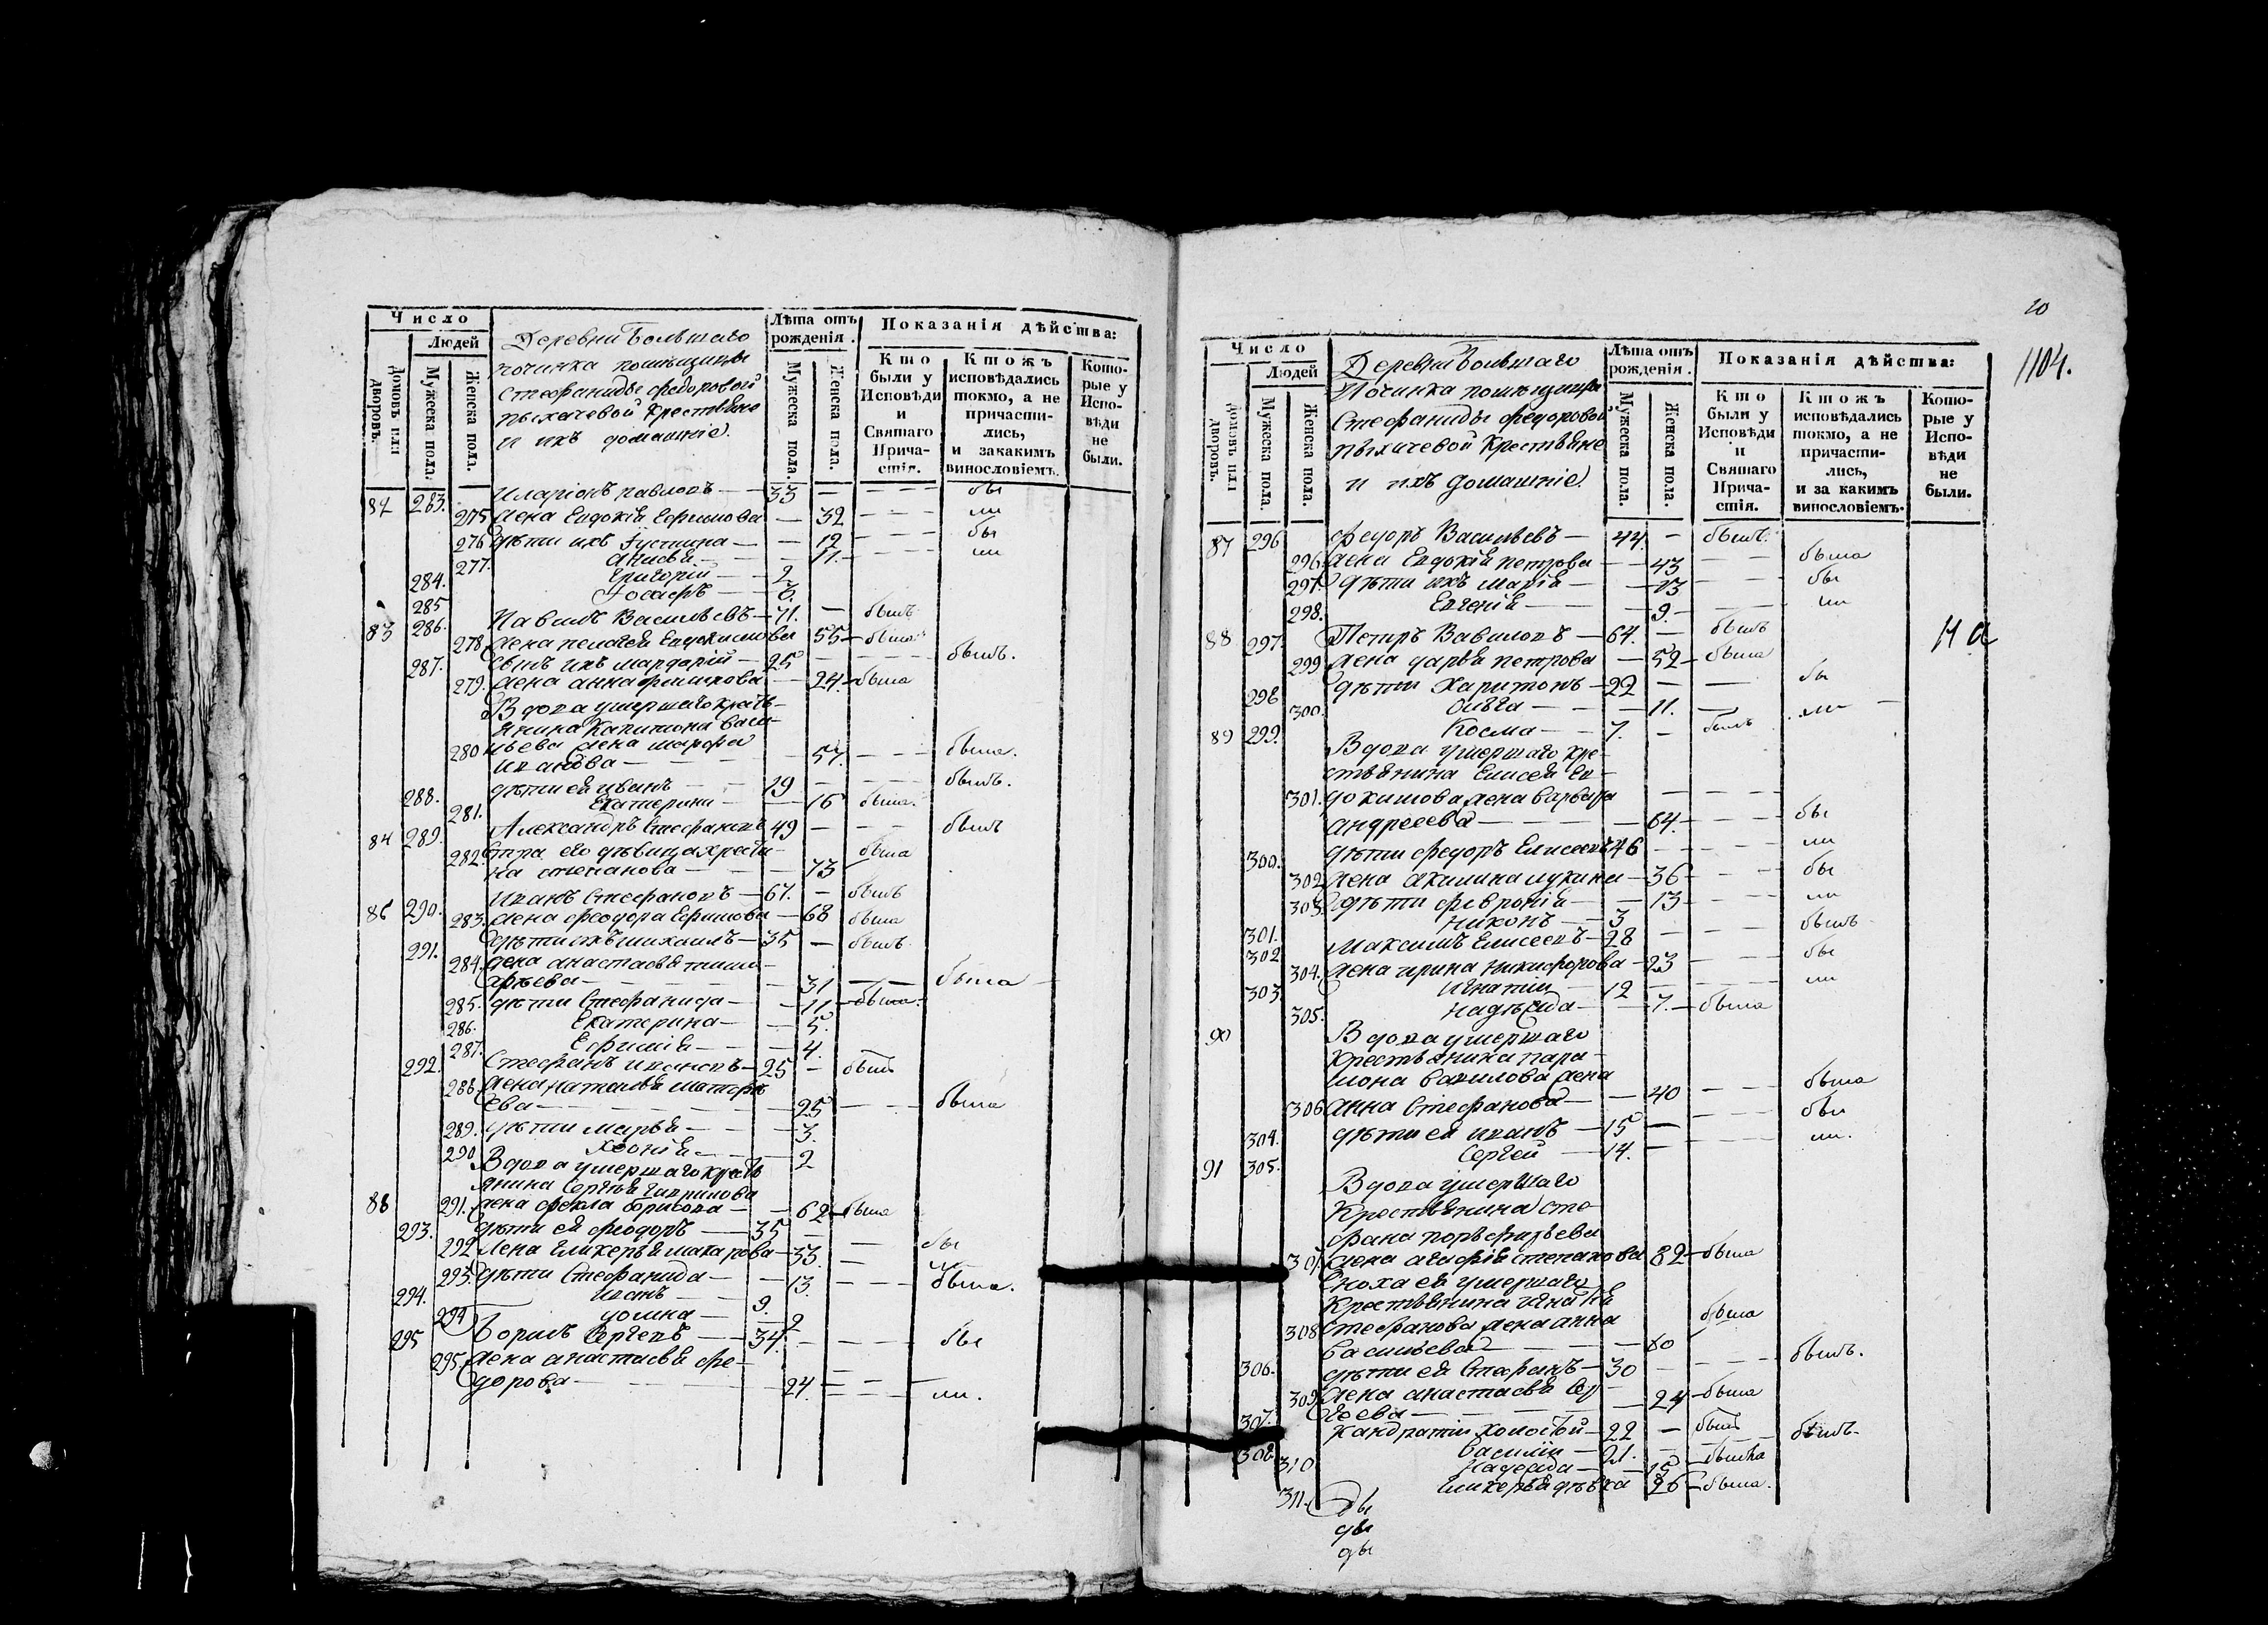 Число
Людей
Домовъ или дворовъ.
Мужеска пола.
Женска пола.
Деревни Большаго
починка помѣщицы
Стефаниды Федоровой
Пыхачевой Крестьяне
и ихъ домашніе.
Лѣта отъ рожденія.
Мужеска пола.
Женска пола.
Показанія дѣйства:
Кто были у Исповѣди и Святаго Прича-стія.
Ктожъ исповѣдались токмо, а не причасти-лись, и закакимъ винословіемъ.
Кото-рые у Испо-вѣди не были.
82 283. Иларіонъ Павловъ — 33 — бы
275 жена Евдокія Ефимова — 32 — ли
276 дѣти ихъ Іустина — 12 — бы
277. Анисья — 11. — ли
284. Григорій — 2
285 Іосифъ — 6.
83 286. Вавилъ Васильевъ — 71. — былъ
278. жена Пелагея Евдокимова 55 — была
287. сынъ ихъ Мардарій — 25 — былъ.
279. жена Анна Филипова — 24. — была
Вдова умершаго кресть-
янина Капитона Васи-
280 льева жена Марфа
Иванова — 57. — была.
288. дѣти ея Иванъ — 19 — былъ.
281. Екатерина — 16 была.
84 289. Александръ Стефановъ 49 — былъ
282. стра его дѣвица Христи-
на Степанова — 73 была
86 290. Иванъ Стефановъ — 67. — былъ
283. жена Феодора Ефимова — 68 была
291. дѣти ихъ Михаилъ — 35 — былъ
284. жена Анастасья Тимо-
фѣева — 31 — была
285. дѣти Стефанида — 11 — была.
286. Екатерина — 5.
287. Ефимія — 4.
292. Стефанъ Ивановъ — 25 — былъ
288. жена Наталья Матфѣ-
ева — 25 — была
289. дѣти Марья — 3.
290 Хеонія — 2
Вдова умершаго кресть
янина Сергѣя Гаврилова
88 291. жена Фекла Борисова — 62 — была
293. дѣти ея Феодоръ — 35 —
292 жена Гликерья Макарова — 33. — бы
ли
293. дѣти Стефанида — 13. — была.
294. Иванъ — 9.
294 Домна — 2
295 Борисъ Сергеевъ — 34. — бы
295. жена Анастасья Фе-
дорова — 24. — ли.
20
1104.
Число
Людей
Домовъ или дворовъ.
Мужеска пола.
Женска пола.
Деревни Большаго
Починка помѣщицы
Стефаниды Федоровой
Пыхачевой Крестьяне
и ихъ домашніе.
Лѣта отъ рожденія.
Мужеска пола.
Женска пола.
Показанія дѣйства:
Кто были у Исповѣди и Святаго Прича-стія.
Ктожъ исповѣдались токмо, а не причасти-лись, и за какимъ винословіемъ.
Кото-рые у Испо-вѣди не были.
87 296 Федоръ Васильевъ — 44. — былъ.
296. жена Евдокія Петрова — 43 — была
297. дѣти ихъ Марія — 13 — бы
298. Евгенія — 9. — ли
88 297. Петръ Вавиловъ — 64. — былъ
299 жена Дарья Петрова — 52 — была
298 дѣти Харитонъ — 22 — бы
300. Ольга — 11. — ли
89 299. Косма — 7. — былъ
Вдова умершаго кре-
стьянина Елисея Ев-
301. докимова жена Варвара
Андреева — 64. — бы
300. дѣти Федоръ Елисеевъ 46 — ли
302 жена Акилина Лукина — 36 — бы
303. дѣти Февронія — 13 — ли
301. Никонъ — 3
302 Максимъ Елисеевъ — 28 — былъ
304. жена Ирина Никифорова — 23 — бы
303 Игнатій — 12 — ли
305. Надѣжда — 7. — была
90 Вдова умершаго
Крестьянина Пара-
мона Вавилова жена
306 Анна Стефанова — 40 — была
304. дѣти ея Иванъ — 15 — бы
91 305. Сергей — 14. — ли.
Вдова умершаго
Крестьянина Сте-
фана Порфирьева
307. жена Агафія Степанова 82 — была
Сноха ея умершаго
Крестьянина Игнатья
308 Стефанова жена Анна
Васильева — 60 была
306. дѣти ея Стефанъ — 30 — былъ.
309 жена Анастасья Сер-
геева — 24 — была
307. Кандратій холостой — 22 — былъ
308. Василій — 21. — былъ.
310 Надежда — была
311. Гликерья дѣвка 26 — была.
На
ды
ды
ды